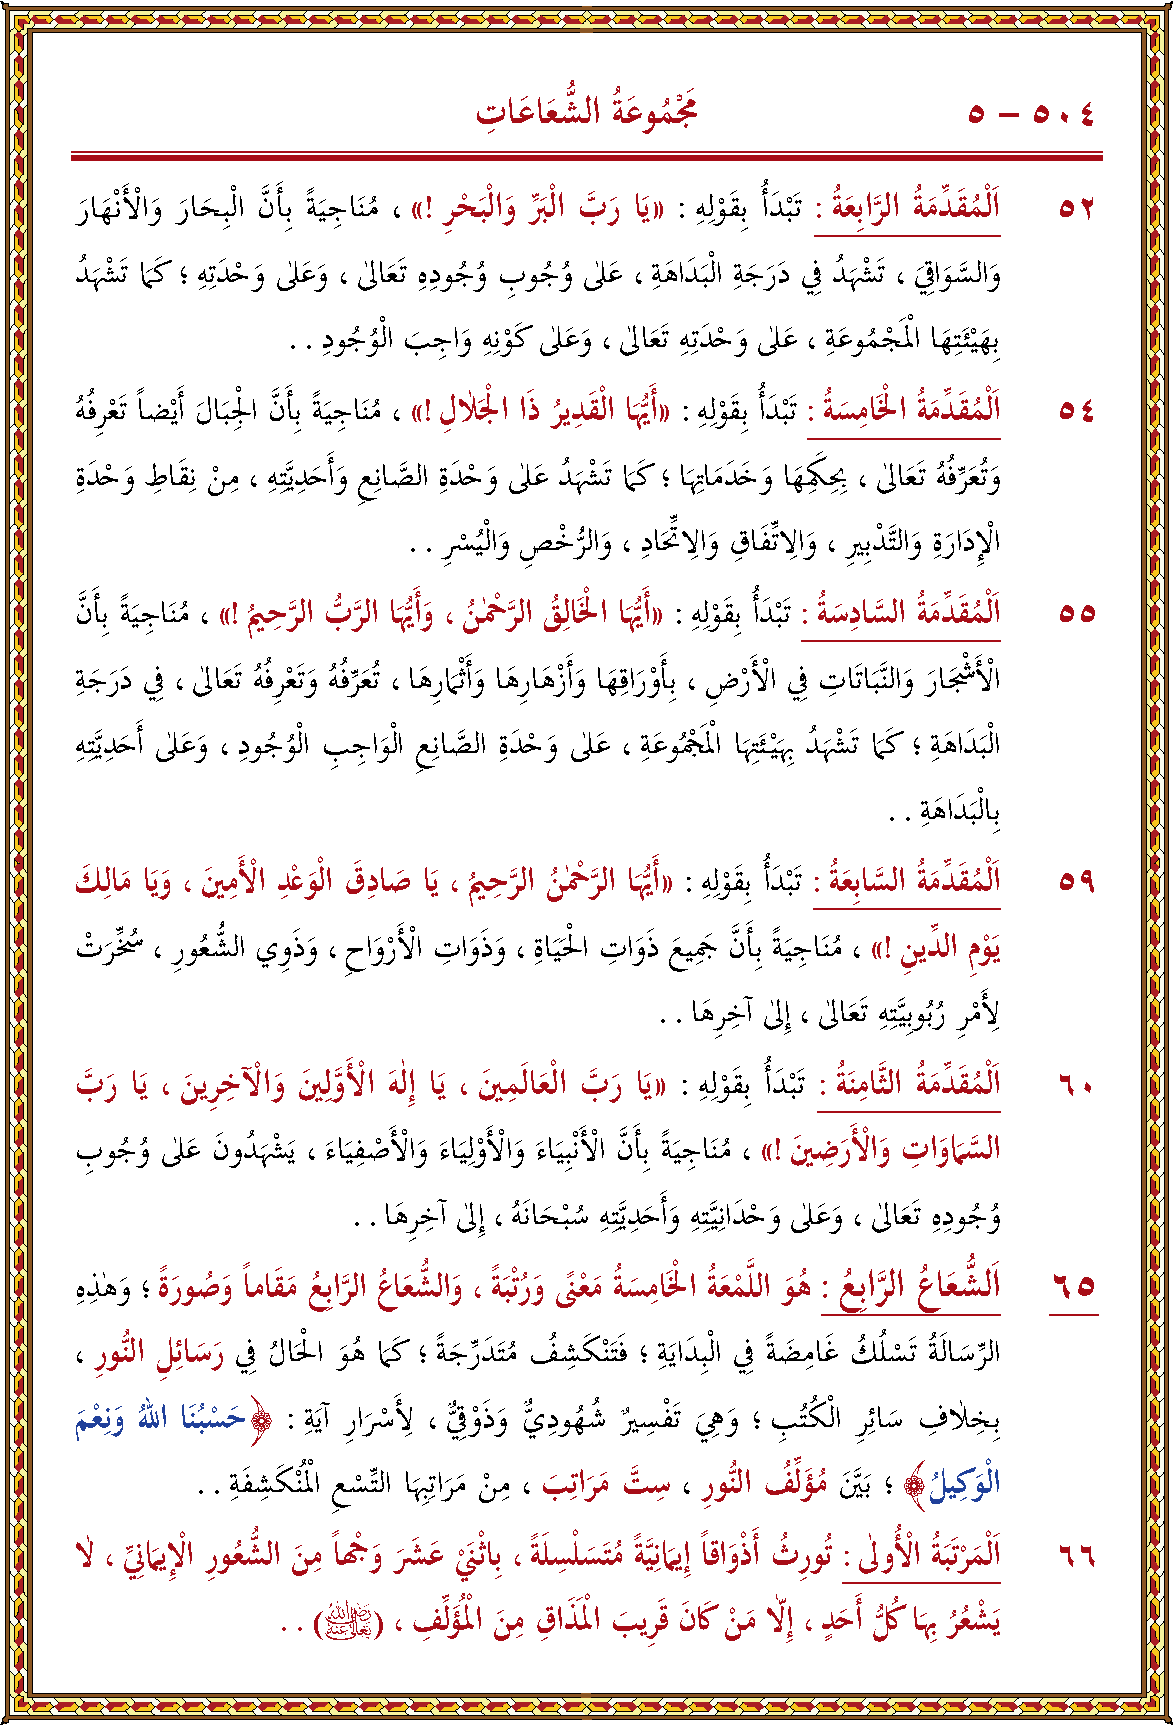 ٥٠٤ – ٥ مَجْمُوعَةُ الشُّعَاعَاتِ
٥٢ اَلْمُقَدِّمَةُ الرَّابِعَةُ : تَبْدَأُ بِقَوْلِهِ : «يَا رَبَّ الْبَرِّ وَالْبَحْرِ !» ، مُنَاجِيَةً بِأَنَّ الْبِحَارَ وَالْأَنْهَارَ
وَالسَّوَاقِيَ ، تَشْهَدُ فِي دَرَجَةِ الْبَدَاهَةِ ، عَلٰى وُجُوبِ وُجُودِهِ تَعَالٰى ، وَعَلٰى وَحْدَتِهِ ؛ كَمَا تَشْهَدُ
بِهَيْئَتِهَا الْمَجْمُوعَةِ ، عَلٰى وَحْدَتِهِ تَعَالٰى ، وَعَلٰى كَوْنِهِ وَاجِبَ الْوُجُودِ . .
٥٤ اَلْمُقَدِّمَةُ الْخَامِسَةُ : تَبْدَأُ بِقَوْلِهِ : «أَيُّهَا الْقَدِيرُ ذَا الْجَلَالِ !» ، مُنَاجِيَةً بِأَنَّ الْجِبَالَ أَيْضاً تَعْرِفُهُ
وَتُعَرِّفُهُ تَعَالٰى ، بِحِكَمِهَا وَخَدَمَاتِهَا ؛ كَمَا تَشْهَدُ عَلٰى وَحْدَةِ الصَّانِعِ وَأَحَدِيَّتِهِ ، مِنْ نِقَاطِ وَحْدَةِ
الْإِدَارَةِ وَالتَّدْبِيرِ ، وَالِاتِّفَاقِ وَالِاتِّحَادِ ، وَالرُّخْصِ وَالْيُسْرِ . .
٥٥ اَلْمُقَدِّمَةُ السَّادِسَةُ : تَبْدَأُ بِقَوْلِهِ : «أَيُّهَا الْخَالِقُ الرَّحْمٰنُ ، وَأَيُّهَا الرَّبُّ الرَّحِيمُ !» ، مُنَاجِيَةً بِأَنَّ
الْأَشْجَارَ وَالنَّبَاتَاتِ فِي الْأَرْضِ ، بِأَوْرَاقِهَا وَأَزْهَارِهَا وَأَثْمَارِهَا ، تُعَرِّفُهُ وَتَعْرِفُهُ تَعَالٰى ، فِي دَرَجَةِ
الْبَدَاهَةِ ؛ كَمَا تَشْهَدُ بِهَيْئَتِهَا الْمَجْمُوعَةِ ، عَلٰى وَحْدَةِ الصَّانِعِ الْوَاجِبِ الْوُجُودِ ، وَعَلٰى أَحَدِيَّتِهِ
بِالْبَدَاهَةِ . .
٥٩ اَلْمُقَدِّمَةُ السَّابِعَةُ : تَبْدَأُ بِقَوْلِهِ : «أَيُّهَا الرَّحْمٰنُ الرَّحِيمُ ، يَا صَادِقَ الْوَعْدِ الْأَمِينَ ، وَيَا مَالِكَ
يَوْمِ الدِّينِ !» ، مُنَاجِيَةً بِأَنَّ جَمِيعَ ذَوَاتِ الْحَيَاةِ ، وَذَوَاتِ الْأَرْوَاحِ ، وَذَوِي الشُّعُورِ ، سُخِّرَتْ
لِأَمْرِ رُبُوبِيَّتِهِ تَعَالٰى ، إِلٰى آخِرِهَا . .
٦٠ اَلْمُقَدِّمَةُ الثَّامِنَةُ : تَبْدَأُ بِقَوْلِهِ : «يَا رَبَّ الْعَالَمِينَ ، يَا إِلٰهَ الْأَوَّلِينَ وَالْآخِرِينَ ، يَا رَبَّ
السَّمَاوَاتِ وَالْأَرَضِينَ !» ، مُنَاجِيَةً بِأَنَّ الْأَنْبِيَاءَ وَالْأَوْلِيَاءَ وَالْأَصْفِيَاءَ ، يَشْهَدُونَ عَلٰى وُجُوبِ
وُجُودِهِ تَعَالٰى ، وَعَلٰى وَحْدَانِيَّتِهِ وَأَحَدِيَّتِهِ سُبْحَانَهُ ، إِلٰى آخِرِهَا . .
٦٥ اَلشُّعَاعُ الرَّابِعُ : هُوَ اللَّمْعَةُ الْخَامِسَةُ مَعْنًى وَرُتْبَةً ، وَالشُّعَاعُ الرَّابِعُ مَقَاماً وَصُورَةً ؛ وَهٰذِهِ
الرِّسَالَةُ تَسْلُكُ غَامِضَةً فِي الْبِدَايَةِ ؛ فَتَنْكَشِفُ مُتَدَرِّجَةً ؛ كَمَا هُوَ الْحَالُ فِي رَسَائِلِ النُّورِ ،
بِخِلَافِ سَائِرِ الْكُتُبِ ؛ وَهِيَ تَفْسِيرٌ شُهُودِيٌّ وَذَوْقِيٌّ ، لِأَسْرَارِ آيَةِ : ﴿حَسْبُنَا اللّٰهُ وَنِعْمَ
الْوَكِيلُ﴾ ؛ بَيَّنَ مُؤَلِّفُ النُّورِ ، سِتَّ مَرَاتِبَ ، مِنْ مَرَاتِبِهَا التِّسْعِ الْمُنْكَشِفَةِ . .
٦٦ اَلْمَرْتَبَةُ الْأُولٰى : تُورِثُ أَذْوَاقاً إِيمَانِيَّةً مُتَسَلْسِلَةً ، بِاثْنَيْ عَشَرَ وَجْهاً مِنَ الشُّعُورِ الْإِيمَانِيِّ ، لَا
يَشْعُرُ بِهَا كُلُّ أَحَدٍ ، إِلَّا مَنْ كَانَ قَرِيبَ الْمَذَاقِ مِنَ الْمُؤَلِّفِ ، (رَضِيَ اللّٰهُ تَعَالٰى عَنْهُ) . .